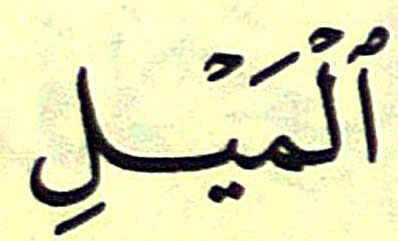 ٱلْمَيْلِ